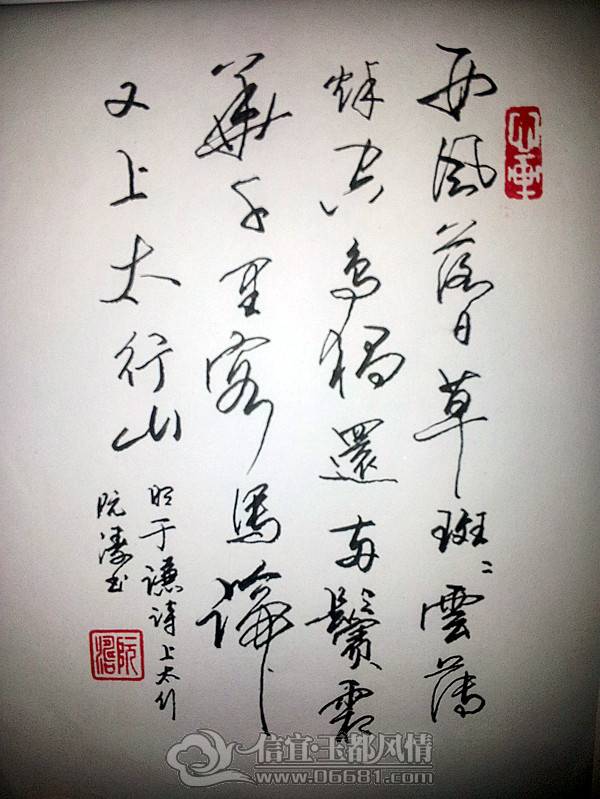 西風落日草斑〻雲薄
秋空鳥獨還兩鬢霜
華千里客馬蹄
又上太行山
明于謙诗上太行
阮濤书
信宜·玉都风情
www.06681.com